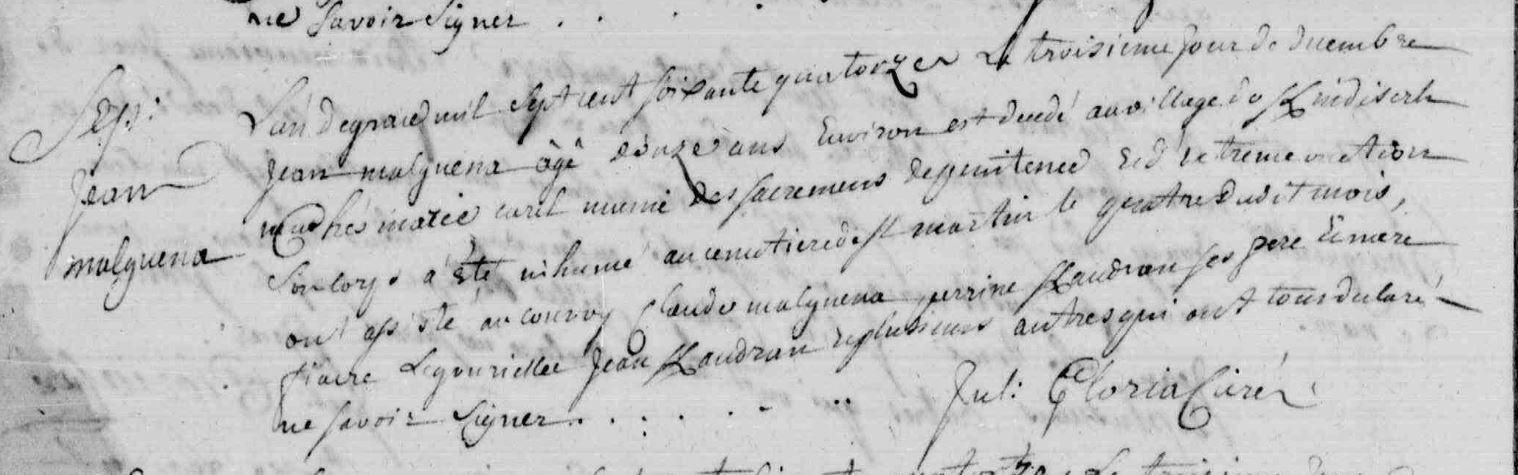 ne savoir signer . . . .
Sep:
jean
malguena
L'an de grace mil sept cent soixante quatorze le troisieme jour de decembre
jean malguena âgé d'onze ans Environ est decedé au village de
muni des sacremens de penitence Et d'extreme onction
son corps a Eté inhumé au cemetiere de st martin le quatre dudit mois,
ont assisté au convoy Claude malguena perrine Kaudran ses pere Et mere
pierre jean Kaudran et plusieurs autres qui ont tous declaré
ne savoir signer . . . . . . Jul: Gloria Curé